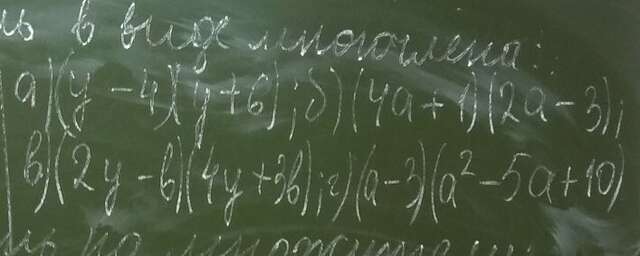 ь в виде многочлена:
а) (y - 4)(y + 6); б) (4a + 1)(2a - 3);
в) (2y - b)(4y + 3b); г) (a - 3)(a² - 5a + 10)
ь на множители: